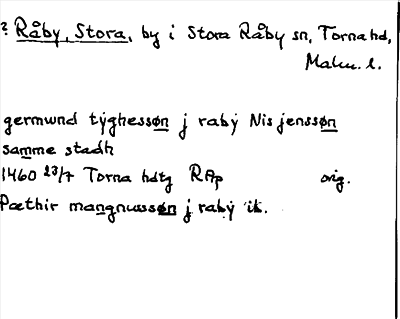 ? Råby, Stora, by i Stora Råby sn, Torna hd,
Malm. l.
germund tÿghessøn j rabÿ Nis jenssøn
samme stadh
1460 23/7 Torna hdtg RAp orig.
Pæthir mangnussøn j rabÿ ib.